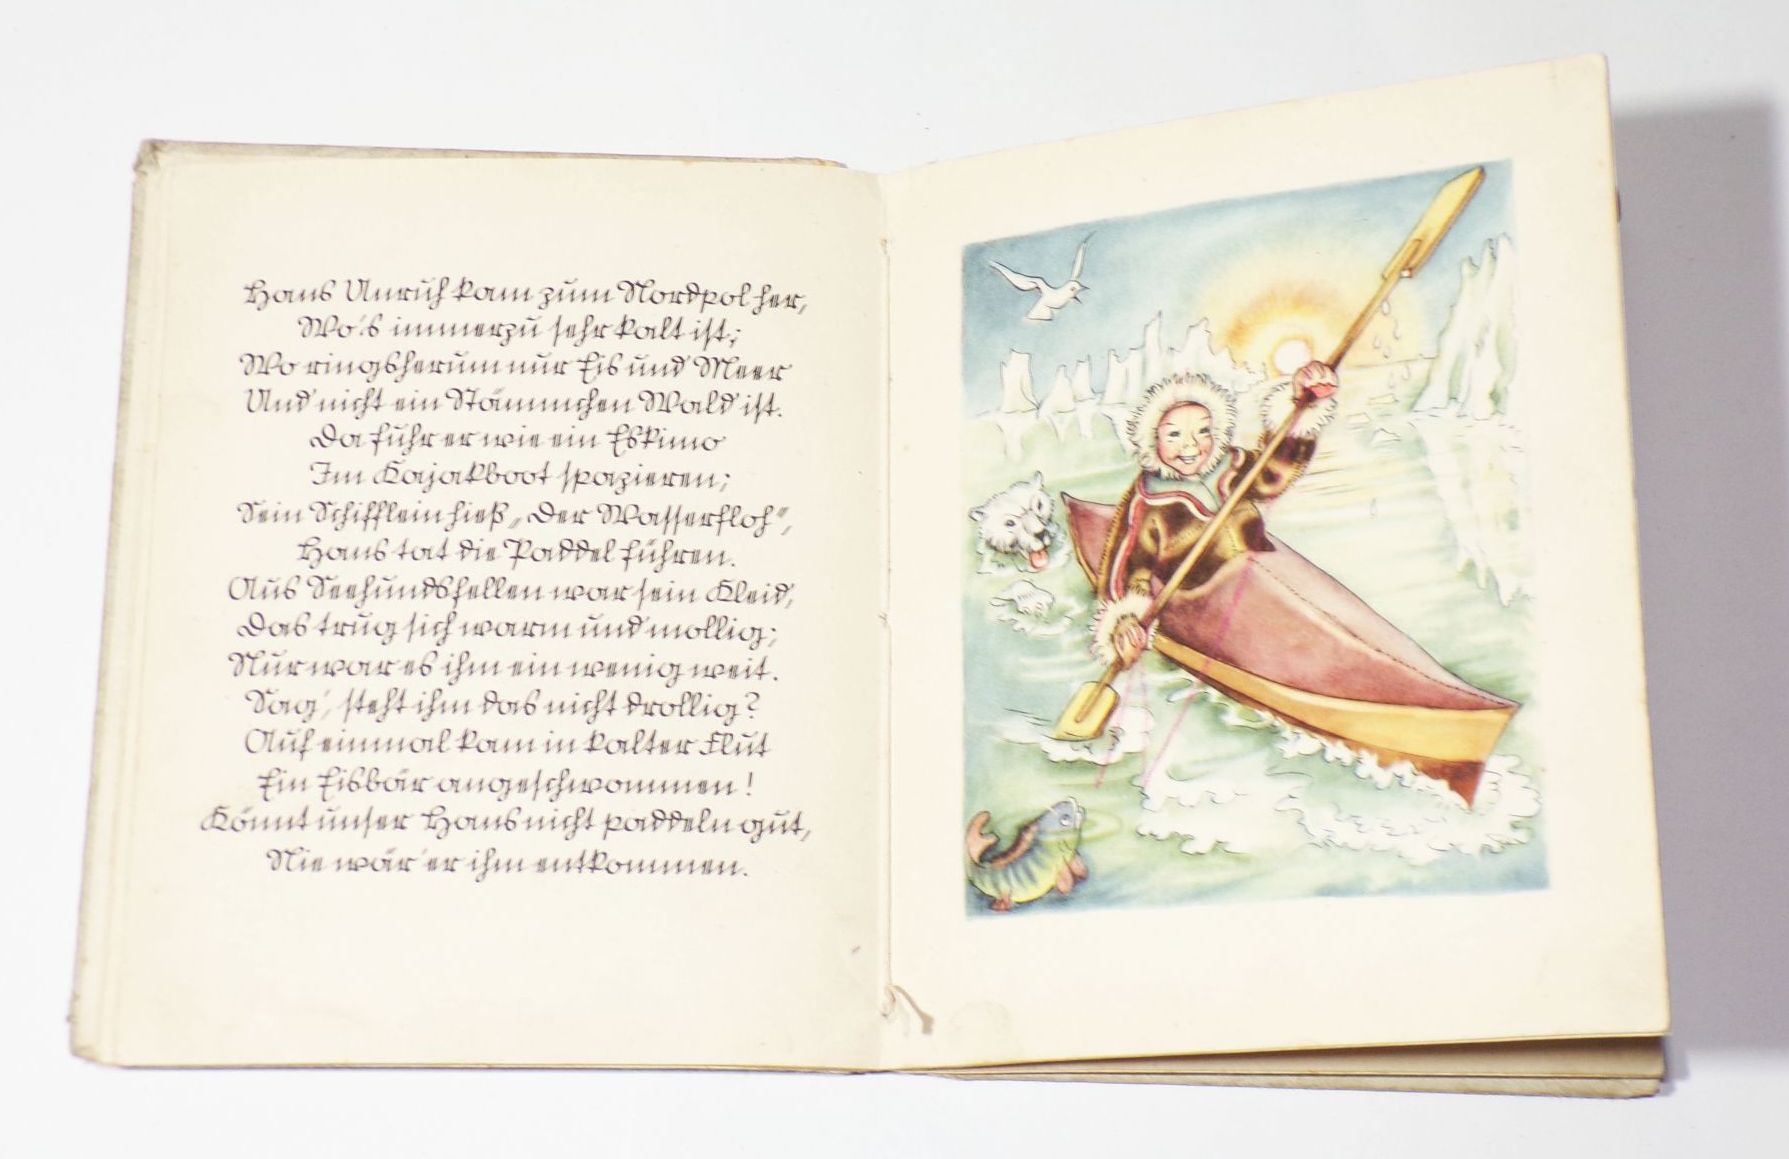 Hans Unruh kam zum Nordpol her,
Wo's immerzu sehr kalt ist;
Wo ringsherum nur Eis und Meer
Und nicht ein Stämmchen Wald ist.
Da fuhr er wie ein Eskimo
Im Kajakboot spazieren;
Sein Schifflein hieß „Der Wasserfloh“,
Hans tat die Paddel führen.
Aus Seehundsfellen war sein Kleid,
Das trug sich warm und mollig;
Nur war es ihm ein wenig weit.
Sag', steht ihm das nicht drollig?
Auf einmal kam in kalter Flut
Ein Eisbär angeschwommen!
Könnt unser Hans nicht paddeln gut,
Nie wär' er ihm entkommen.